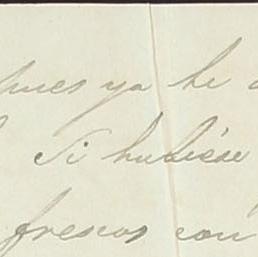 pues ya he
Si hubiese
frescos con